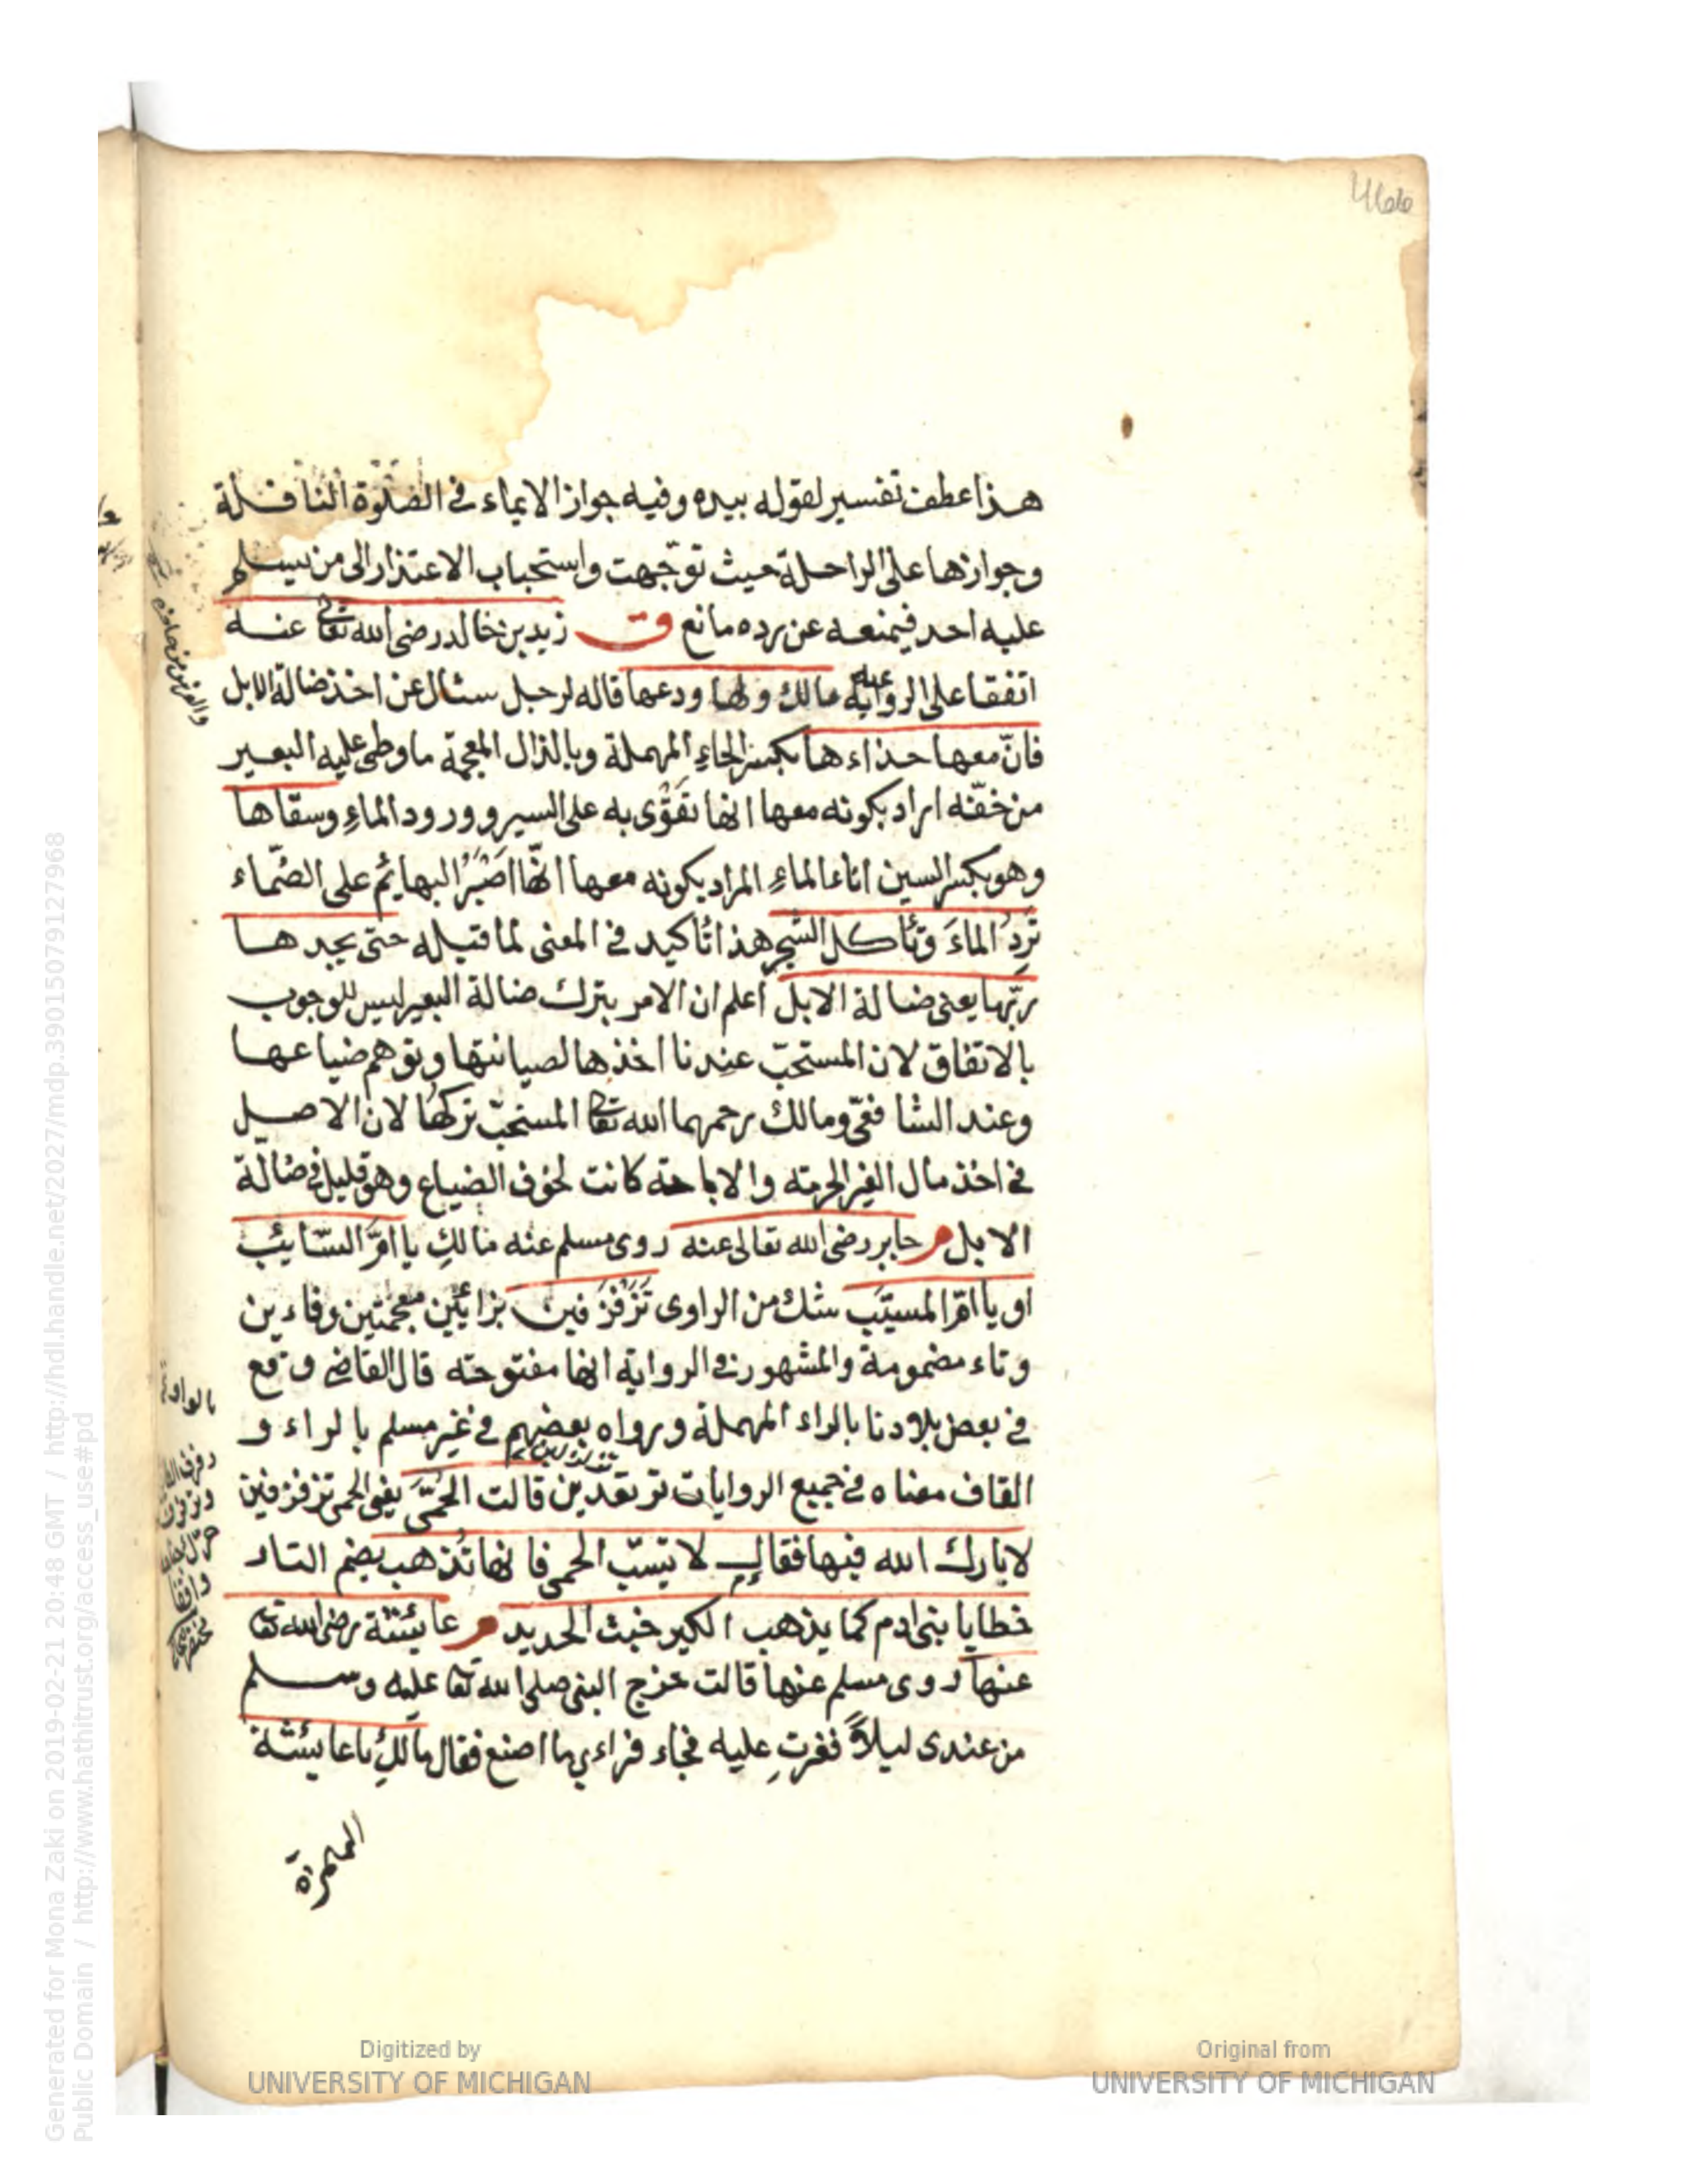 هذا عطف تفسير لقوله بيده وفيه جواز الايماء في الصلوة النافلة
وجوازها على الراحلة حيث توجّهت واستحباب الاعتذار الى من يسلم
عليه احد فيمنعه عن رده مانع ق زيد بن خالد رضى الله تعا عنه
اتفقا على الرواية عنه مالك ولها ودعها قاله لرجل سئال عن اخذ ضالة الابل
فانّ معها حذاءها بكسر الحاءِ المهملة وبالذال المعجمة ما وطى عليه البعير
من خفّه اراد بكونه معها انها تقوّى به على السير وورود الماءِ وسقاها
وهو بكسر السين اناء الماءِ المراد بكونه معها انّها اصْبَرُ البهائم على الضّماء
تَرِدُ الماءَ وتأكل الشجر هذا تاكيد في المعنى لما قبله حتى يجدها
ربّها يعنى ضالة الابل اعلم ان الامر بترك ضالة البعير ليس للوجوب
بالاتفاق لان المستحبّ عندنا اخذها لصيانتها وتوهم ضياعها
وعند الشافعىّ ومالك رحمهما الله تعا المستحبّ تركها لان الاصل
في اخذ مال الغير الحرمته والاباحته كانت لخوف الضياع وهو قليل في ضالّة
الابل م جابر رضى الله تعالى عنه روى مسلم عنه مالكِ يا امّ السّايئب
او يا امّ المسيّب شك من الراوى تَزَفْزَفين بزائين معجمتين وفاءين
وتاء مضمومة والمشهور في الرواية انها مفتوحته قال القاضى وقع
في بعض بلادنا بالراء المهملة ورواه بعضهم في غير مسلم بالراء و
القاف معناه في جميع الروايات ترتعدين قالت الحمّى يعنى الحمى تزفزفين
لا بارك الله فيها فقال لا تسبّ الحمى فانها تُذهب بضم التاء
خطايا بنى ادم كما يذهب الكير خبث الحديد م عايئشة رضى الله تعا
عنها روى مسلم عنها قالت خرج النبى صلى الله تعا عليه وسلم
من عندى ليلاً فغرتِ عليه فجاء فراءى ما اصنع فقال مالكِ يا عايئشة
بالواو
Digitized by
UNIVERSITY OF MICHIGAN
Original from
UNIVERSITY OF MICHIGAN
Generated for Mona Zaki on 2019-02-21 20:48 GMT / http://hdl.handle.net/2027/mdp.39015079127968
Public Domain / http://www.hathitrust.org/access_use#pd